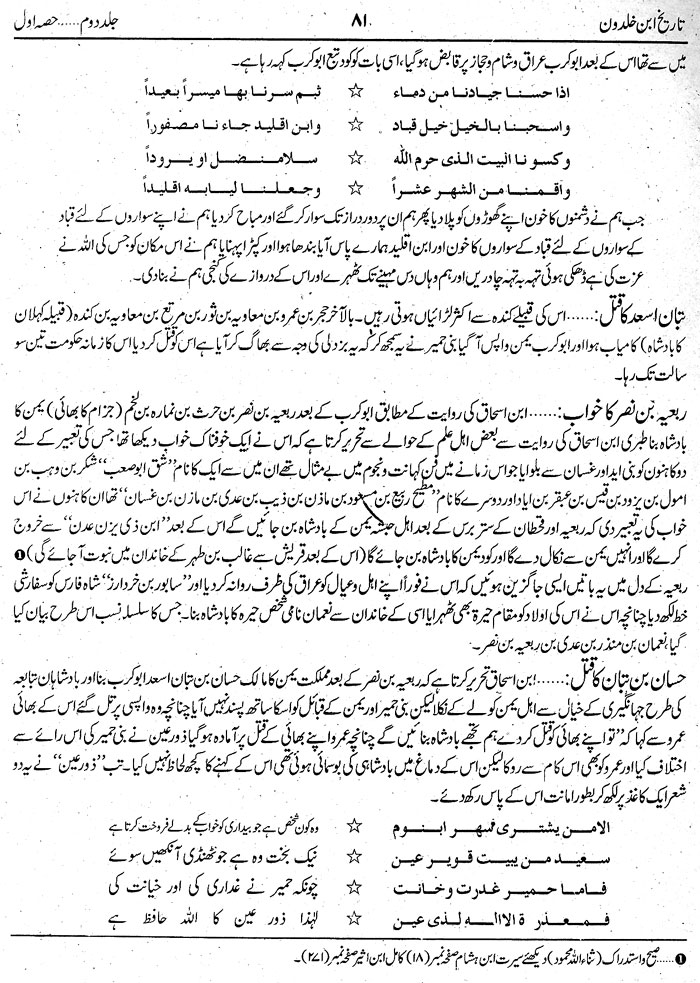 تاریخ ابن خلدون ۸۱ جلد دوم ...... حصہ اول
میں سے تھا اس کے بعد ابوکرب عراق و شام و حجاز پر قابض ہوگیا، اسی بات کو خود تبع ابوکرب کہہ رہا ہے۔
اذا حسنا جیادنا من دماء ☆ ثم سرنا بها میسراً بعیداً
واسحبنا بالخیل خیل قباد ☆ وابن اقلید جاء نا مصفوراً
وکسونا البیت الذی حرم الله ☆ سلامنضل او یروداً
واقمنا من الشهر عشراً ☆ وجعلنا لبابه اقلیداً
جب ہم نے دشمنوں کا خون اپنے گھوڑوں کو پلا دیا پھر ہم ان پر دور دراز تک سوار کر گئے اور مباح کر دیا ہم نے اپنے سواروں کے لئے قباد
کے سواروں کے لئے قباد کے سواروں کا خون اور ابن اقلید ہمارے پاس آیا بندھا ہوا اور کپڑا پہنایا ہم نے اس مکان کو جس کی اللہ نے
عزت کی ہے ڈھکی ہوئی تہہ بہ تہہ چادریں اور ہم وہاں دس مہینے تک ٹھہرے اور اس کے دروازے کی کنجی ہم نے بنا دی۔
تبان اسعد کا قتل :...... اس کی قبیلے کندہ سے اکثر لڑائیاں ہوتی رہیں۔ بالآخر حجر بن عمرو بن معاویہ بن ثور بن مرتع بن معاویہ بن کندہ (قبیلہ کہلان
کا بادشاہ) کامیاب ہوا اور ابوکرب یمن واپس آگیا بنی حمیر نے یہ سمجھ کر کہ یہ بزدلی کی وجہ سے بھاگ کر آیا ہے اس کو قتل کر دیا اس کا زمانہ حکومت تین سو
سالت تک رہا۔
ربعیہ بن نصر کا خواب :...... ابن اسحاق کی روایت کے مطابق ابوکرب کے بعد ربعیہ بن نصر بن حرث بن نمارہ بن لخم (جزام کا بھائی) یمن کا
بادشاہ بنا طبری ابن اسحاق کی روایت سے بعض اہل علم کے حوالے سے تحریر کرتا ہے کہ اس نے ایک خوفناک خواب دیکھا تھا جس کی تعبیر کے لئے
دو کاہنوں کو بنی اید اور غسان سے بلوایا جو اس زمانے میں فن کہانت و نجوم میں بے مثال تھے ان میں سے ایک کا نام ’’شق ابوصعب‘‘ شکر بن وہب بن
امول بن یزود بن قیس بن عبقر بن ایاد اور دوسرے کا نام ’’مطیح ربیع بن مسعود بن ماذن بن ذیب بن عدی بن مازن بن غسان‘‘ تھا ان کاہنوں نے اس
خواب کی یہ تعبیر دی کہ ربعیہ اور قحطان کے ستر برس کے بعد اہل حبشہ یمن کے بادشاہ بن جائیں گے اس کے بعد ’’ابن ذی یزن عدن‘‘ سے خروج
کرے گا اور انہیں یمن سے نکال دے گا اور کود یمن کا بادشاہ بن جائے گا (اس کے بعد قریش سے غالب بن طہر کے خاندان میں نبوت آجائے گی) ❶
ربعیہ کے دل میں یہ باتیں ایسی جاگزین ہوئیں کہ اس نے فوراً اپنے اہل و عیال کو عراق کی طرف روانہ کر دیا اور ’’سابور بن خردارز‘‘ شاہ فارس کو سفارشی
خط لکھ دیا چنانچہ اس نے اس کی اولاد کو مقام حیرۃ بھی ٹھہرایا اسی کے خاندان سے نعمان نامی شخص حیرہ کا بادشاہ بنا۔ جس کا سلسلہ نسب اس طرح بیان کیا
گیا، نعمان بن منذر بن عدی بن ربعیہ بن نصر۔
حسان بن تبان کا قتل :...... ابن اسحاق تحریر کرتا ہے کہ ربعیہ بن نصر کے بعد مملکت یمن کا مالک حسان بن تبان اسعد ابوکرب بنا اور بادشاہان تبابعہ
کی طرح جہانگیری کے خیال سے اہل یمن کو لے کے نکلا لیکن بنی حمیر اور یمن کے قبائل کو اسکا ساتھ پسند نہیں آیا چنانچہ وہ واپسی پر تل گئے اس کے بھائی
عمرو سے کہا کہ ’’تو اپنے بھائی کو قتل کر دے ہم تجھے بادشاہ بنائیں گے چنانچہ عمرو اپنے بھائی کے قتل پر آمادہ ہوگیا ذورعین نے بنی حمیر کی اس رائے سے
اختلاف کیا اور عمرو کو بھی اس کام سے روکا لیکن اس کے دماغ میں بادشاہی کی بو سمائی ہوئی تھی اس کے کہنے کا کچھ لحاظ نہیں کیا۔ تب ’’ذورعین‘‘ نے یہ دو
شعر ایک کاغذ پر لکھ کر بطور امانت اس کے پاس رکھ دئے۔
الامن یشتری فسهر ابنوم ☆ وہ کون شخص ہے جو بیداری کو خواب کے بدلے فروخت کرتا ہے
سعید من یبیت قویر عین ☆ نیک بخت وہ ہے جو ٹھنڈی آنکھیں سوئے
فاما حمیر غدرت وخانت ☆ چونکہ حمیر نے غداری کی اور خیانت کی
فمعذرة الاالله لذی عین ☆ لہٰذا ذور عین کا اللہ حافظ ہے
❶ ...... صحیح و استدراک (ثناء اللہ محمود) دیکھئے سیرت ابن ہشام صفحہ نمبر (۱۸) کامل ابن اثیر صفحہ نمبر (۲۷۱)۔